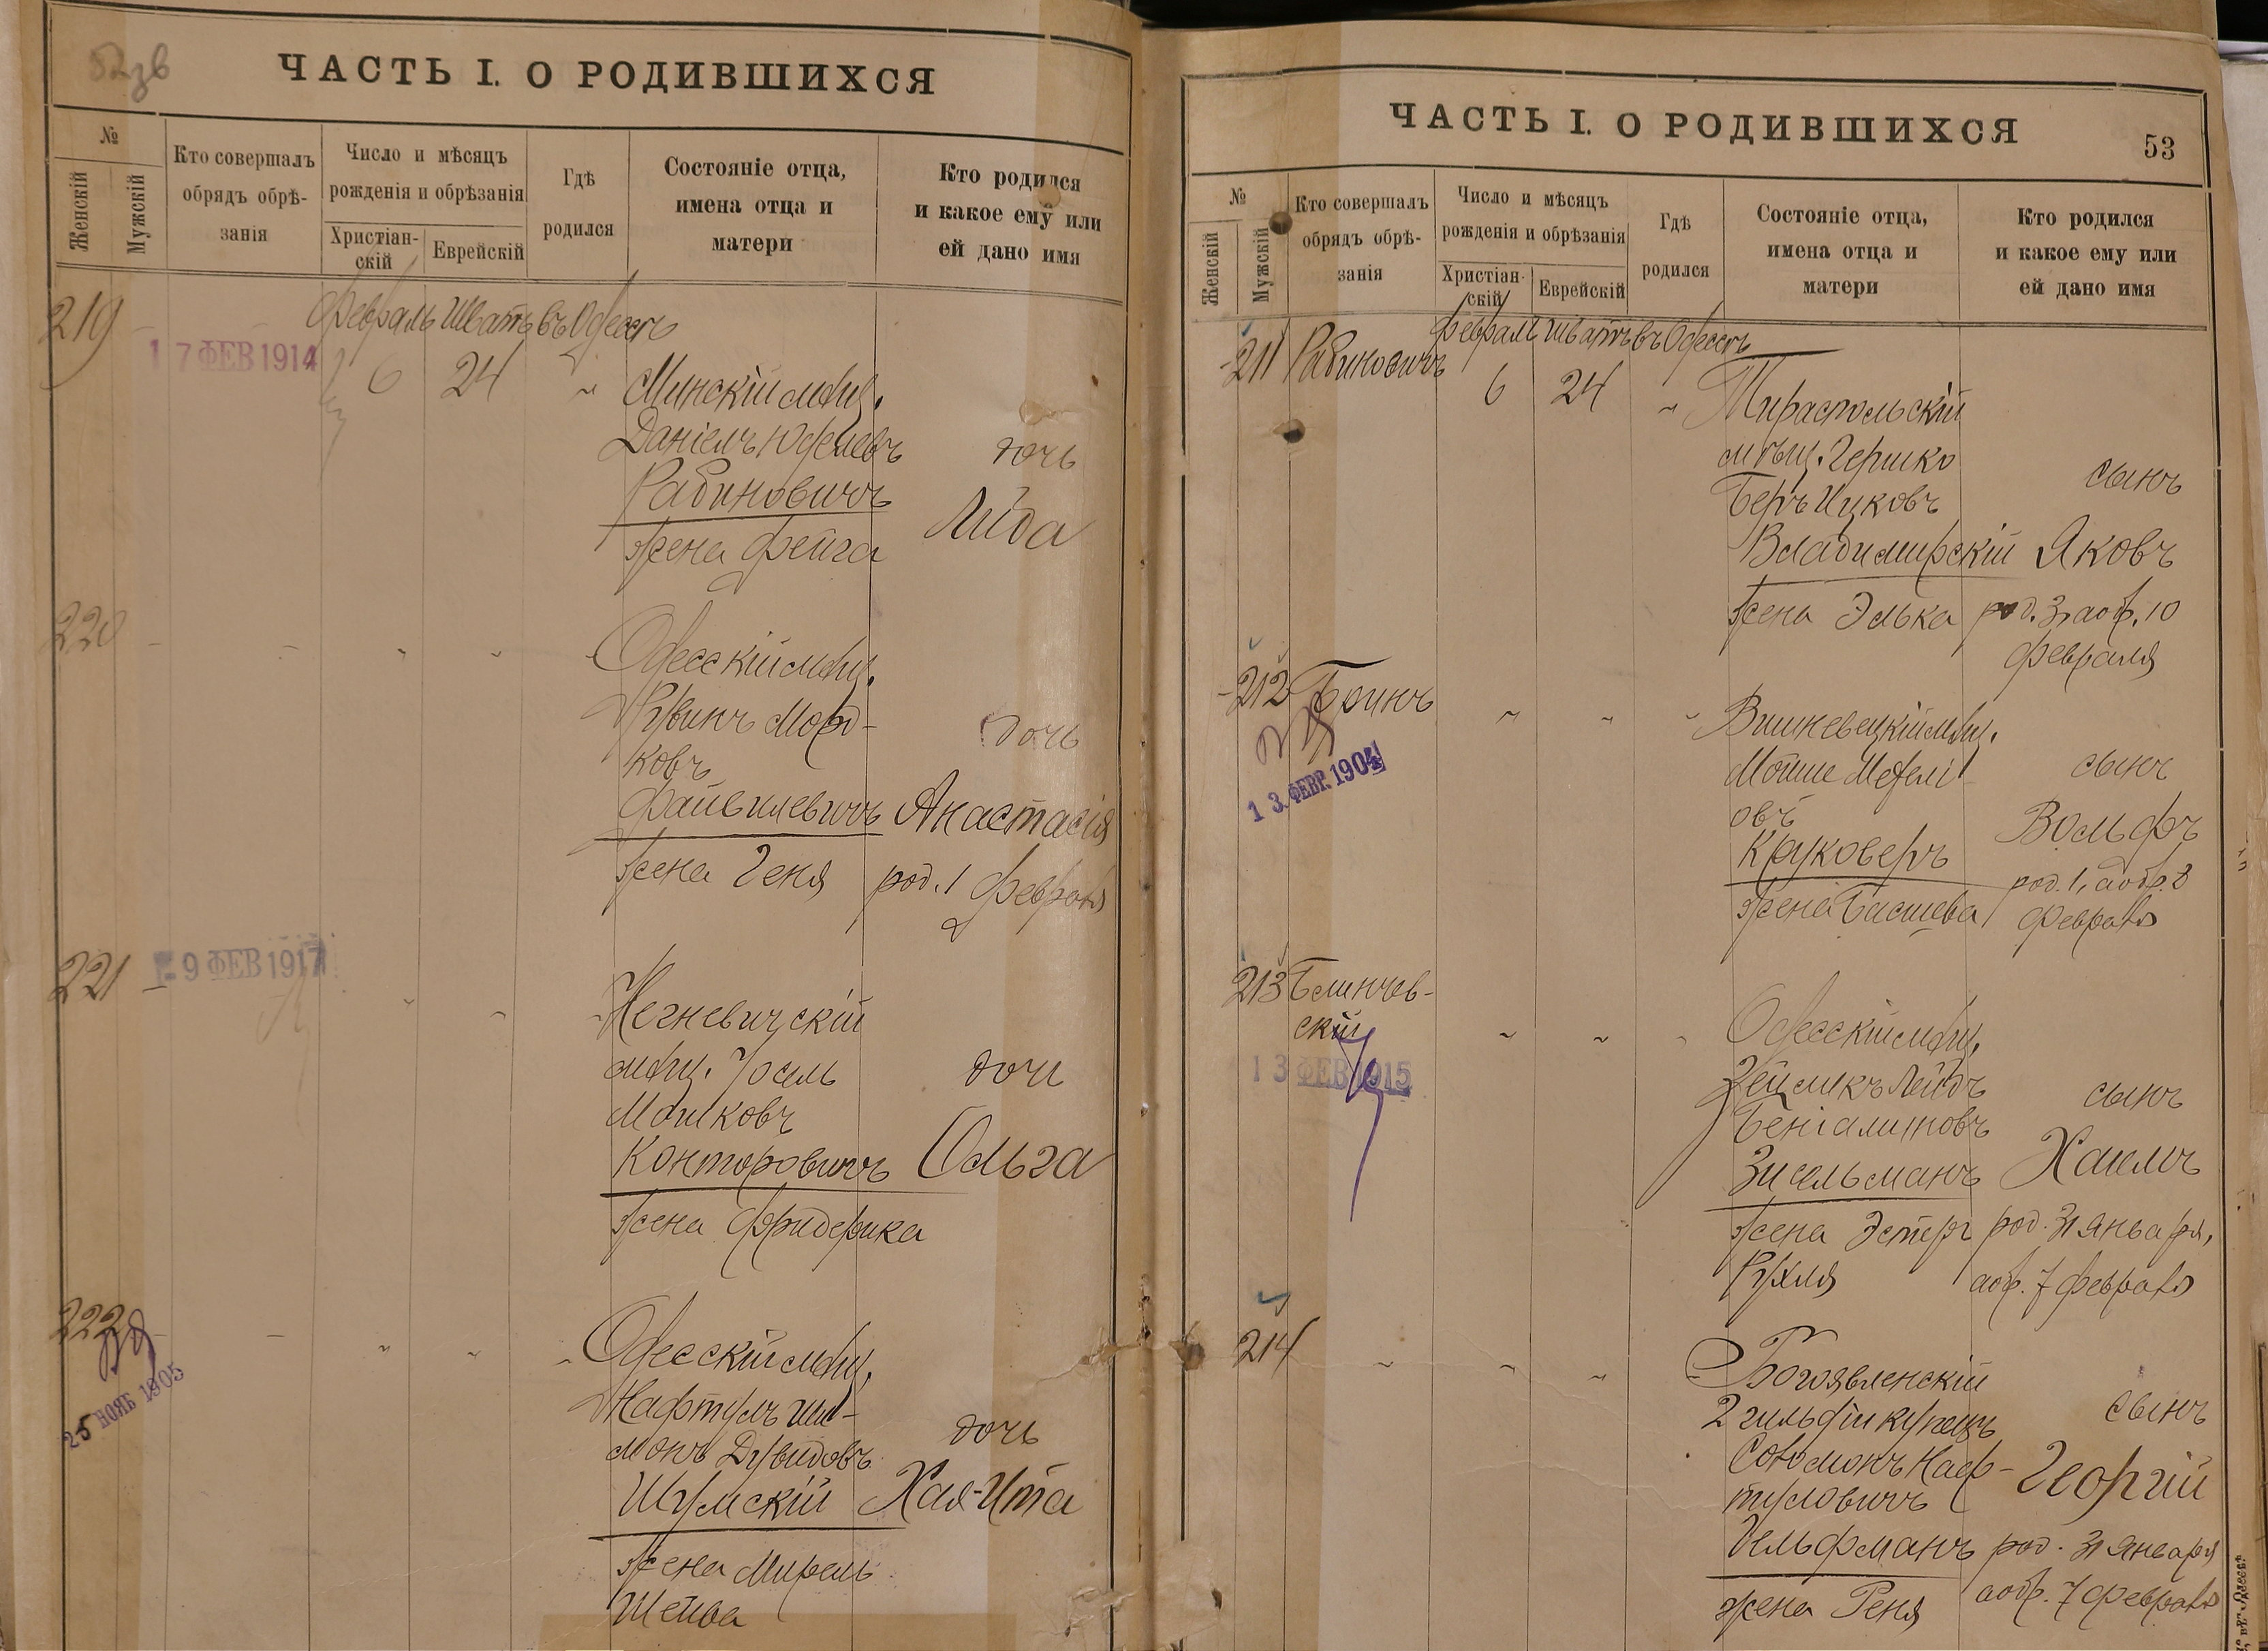 52зв
ЧАСТЬ I. О РОДИВШИХСЯ
№
Женскій
Мужскій
Кто совершалъ
обрядъ обрѣ-
занія
Число и мѣсяцъ
рожденія и обрѣзанія
Христіан-
скій
Еврейскій
Гдѣ
родился
Состояніе отца,
имена отца и
матери
Кто родился
и какое ему или
ей дано имя
219 -
Февраль Шватъ въ Одессѣ
17 ФЕВ 1914
6 24 "
Минскій мѣщ.
Даніелъ Юделевъ
Рабиновичъ
жена Фейга
дочь
Лида
220 - - " "
Одесскій мѣщ.
Рувинъ Морд-
ковъ
Файвилевичъ
жена Геня
дочь
Анастасія
род. 1 февраля
221 -
9 ФЕВ 1917
Негневичскій
мѣщ. Іосель
Мошковъ
Конторовичъ
жена Фридерика
дочь
Ольга
222 - - " "
25 НОЯБ 1905
Одесскій мѣщ.
Нафтулъ Ши-
монъ Дувидовъ
Шумскій
жена Мирель
Шейва
дочь
Хая-Ита
ЧАСТЬ I. О РОДИВШИХСЯ
53
№
Женскій
Мужскій
Кто совершалъ
обрядъ обрѣ-
занія
Число и мѣсяцъ
рожденія и обрѣзанія
Христіан-
скій
Еврейскій
Гдѣ
родился
Состояніе отца,
имена отца и
матери
Кто родился
и какое ему или
ей дано имя
211 Рабиновичъ
Февраль Шватъ въ Одессѣ
6 24 "
Тираспольскій
мѣщ. Гершко
Беръ Ицковъ
Владимирскій
жена Элька
сынъ
Яковъ
род. 3, а обр. 10
февраля
212 " " "
13 ФЕВР. 1904
Вишневецкій мѣщ.
Мойше
овъ
Круковеръ
жена Басшева
сынъ
Вольфъ
род. 1, а обр. 8
февраля
213 Блинчев-
скій
13 ФЕВ 1915
Одесскій мѣщ.
Зейликъ Лейбъ
Беніаминовъ
Зисельманъ
жена Эстеръ
Рухля
сынъ
Хаимъ
род. 31 января,
а обр. 7 февраля
214 " " "
Богоявленскій
2 гильдіи купецъ
Соломонъ Наф-
туловичъ
Гельфманъ
жена Реня
сынъ
Георгій
род. 31 января
а обр. 7 февраля